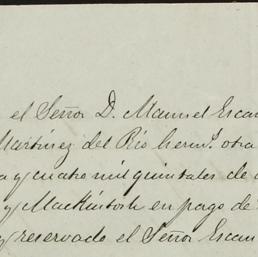 el Señor D. Manuel Escan
Martinez del Rio herm.s otra
a y cuatro mil quintales de
y MacKintosh en pago de
y reservado el Señor Escan